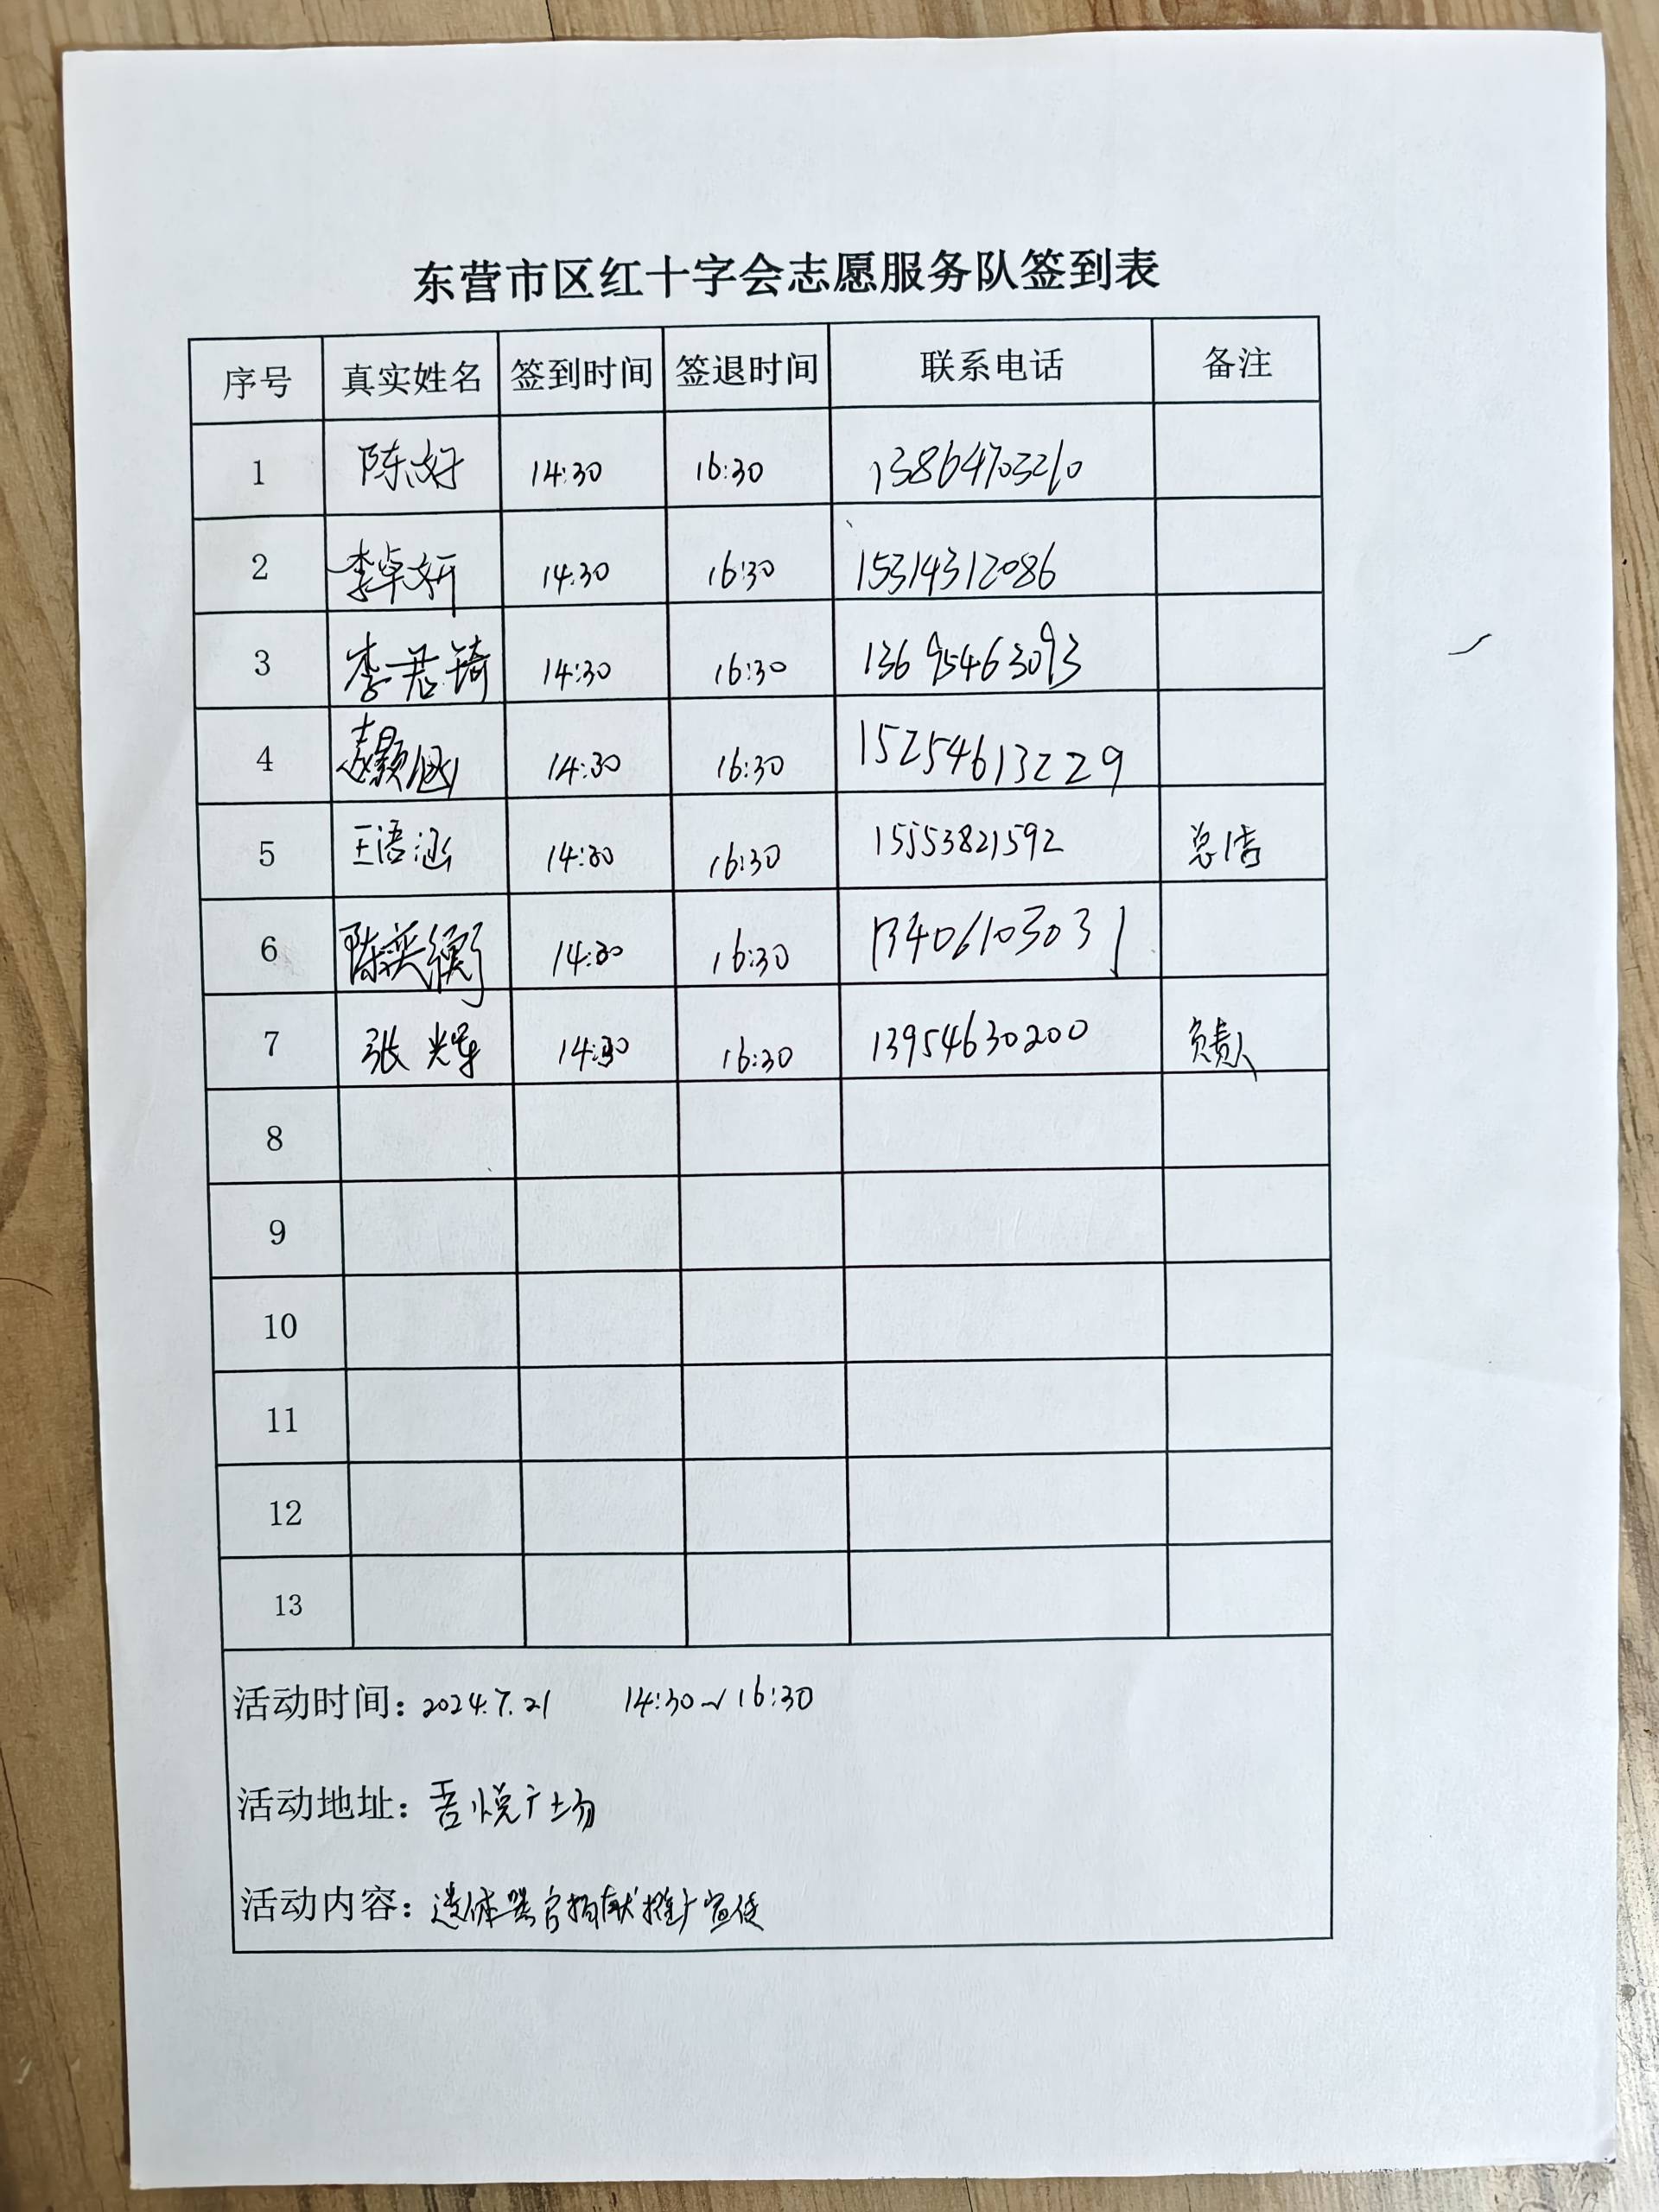 东营市区红十字会志愿服务队签到表
序号 真实姓名 签到时间 签退时间 联系电话 备注
1 陈好 14:30 16:30 13864703210
2 李卓妍 14:30 16:30 15314312086
3 李君锜 14:30 16:30 13695463093
4 14:30 16:30 15254613229
5 王语涵 14:30 16:30 15553821592 总结
6 陈奕衡 14:30 16:30 13406103031
7 张辉 14:30 16:30 13954630200 负责人
8
9
10
11
12
13
活动时间：2024.7.21 14:30~16:30
活动地址：吾悦广场
活动内容：遗体器官捐献推广宣传